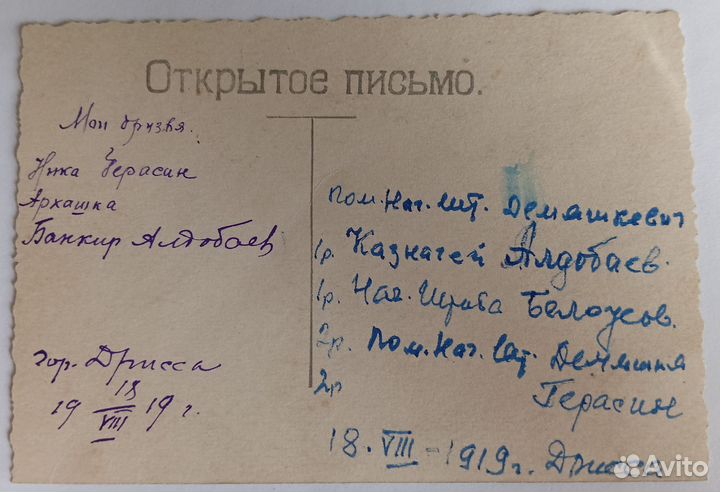 Открытое письмо.
Мои друзья.
Ника Герасин
Аркашка
Банкир Алдобаев
гор. Дрисса
19 18/VIII 19 г.
пом. Нач. шт. Демашкевич
1р. Казначей Алдобаев.
1р. Нач. Штаба Белоусов.
2р. пом. Нач. шт.
2р Герасин
18. VIII - 1919 г. Дрисса
Avito